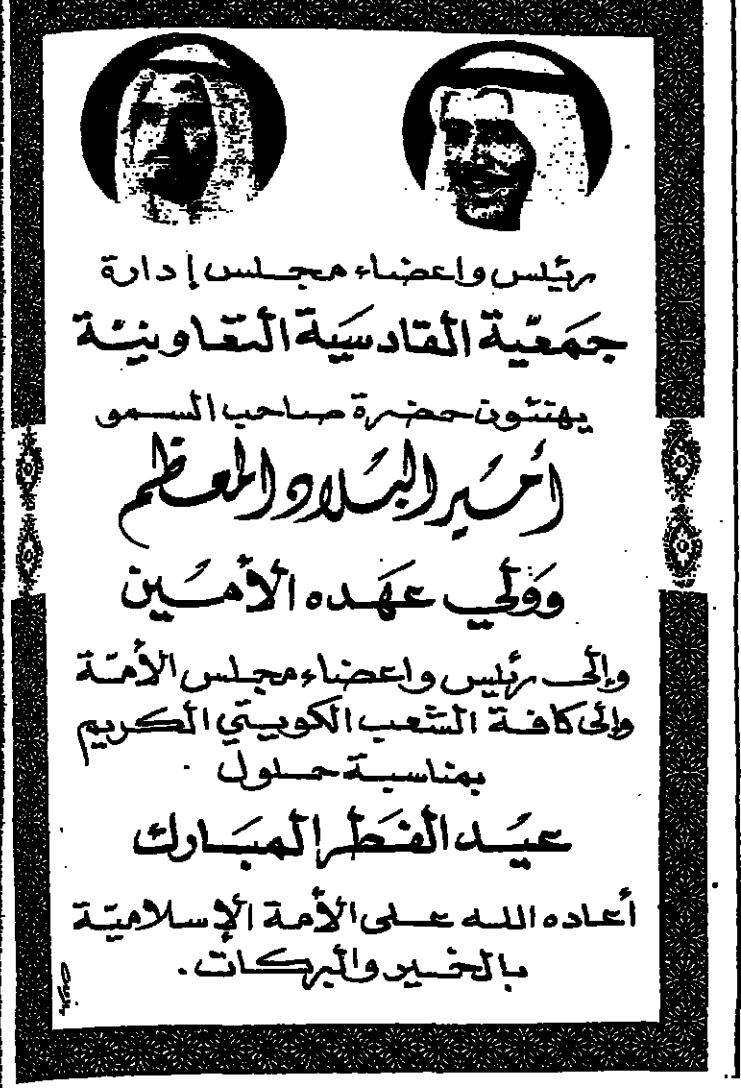 رئيس واعضاء مجلس إدارة
جمَعيّة القادسيَة التعَاونيَّة
يهنئون حضرة صاحب السمو
أمَير البَلاد المعظم
وَوَلي عهَده الأمَين
وإلى رئيس واعضاء مجلس الأمّة
وإلى كافة الشعب الكويتي الكريم
بمناسبة حلول
عيَد الفطر المبَارك
أعاده الله على الأمة الإسلاميّة
بالخير والبركات.